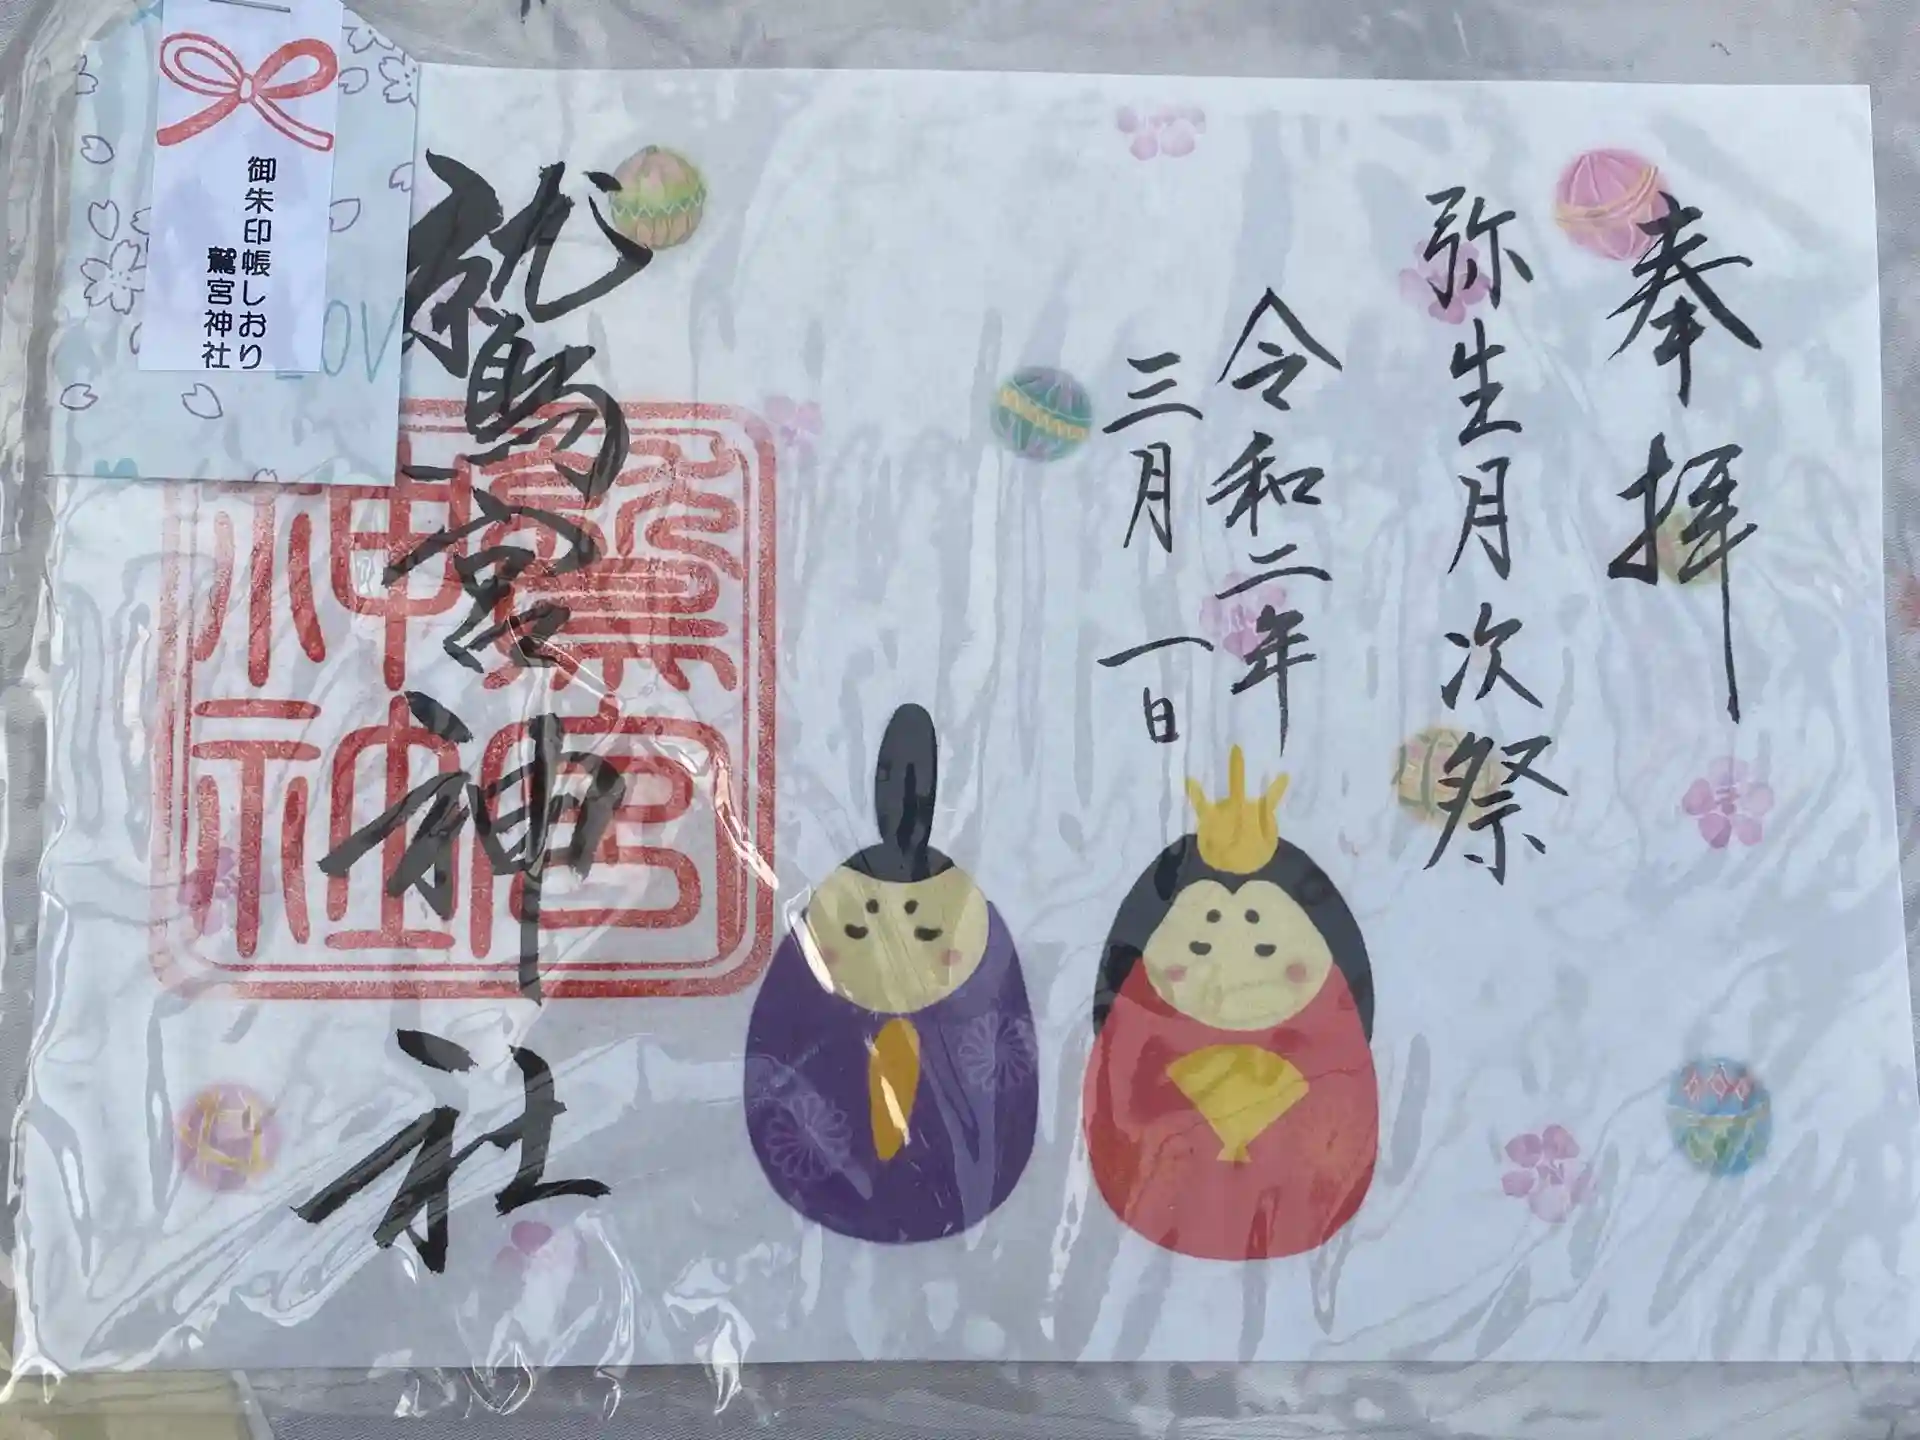 奉拝
弥生月次祭
令和二年
三月一日
鷲宮神社
鷲宮神社
御朱印帳しおり
鷲宮神社
LOV